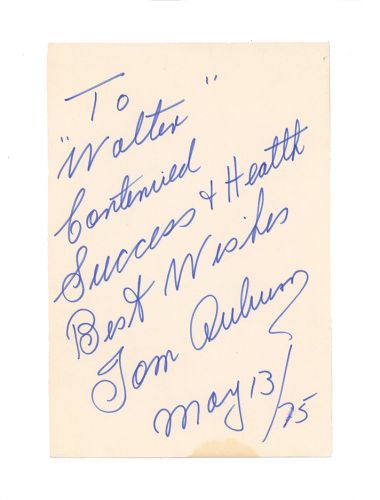 To
"Walter"
Contenued
Success & Health
Best Wishes
Tom
May 13/75